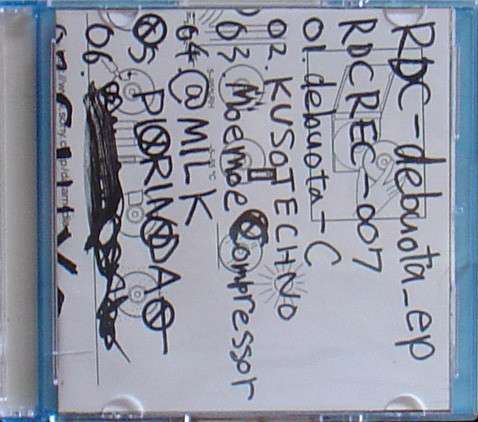 RDC-debuota_ep
RDCREC-007
01. debuota-C
02. KUSOTECHNO
03 Moemoe Compressor
04 @MILK
05 PORINDAO
06.